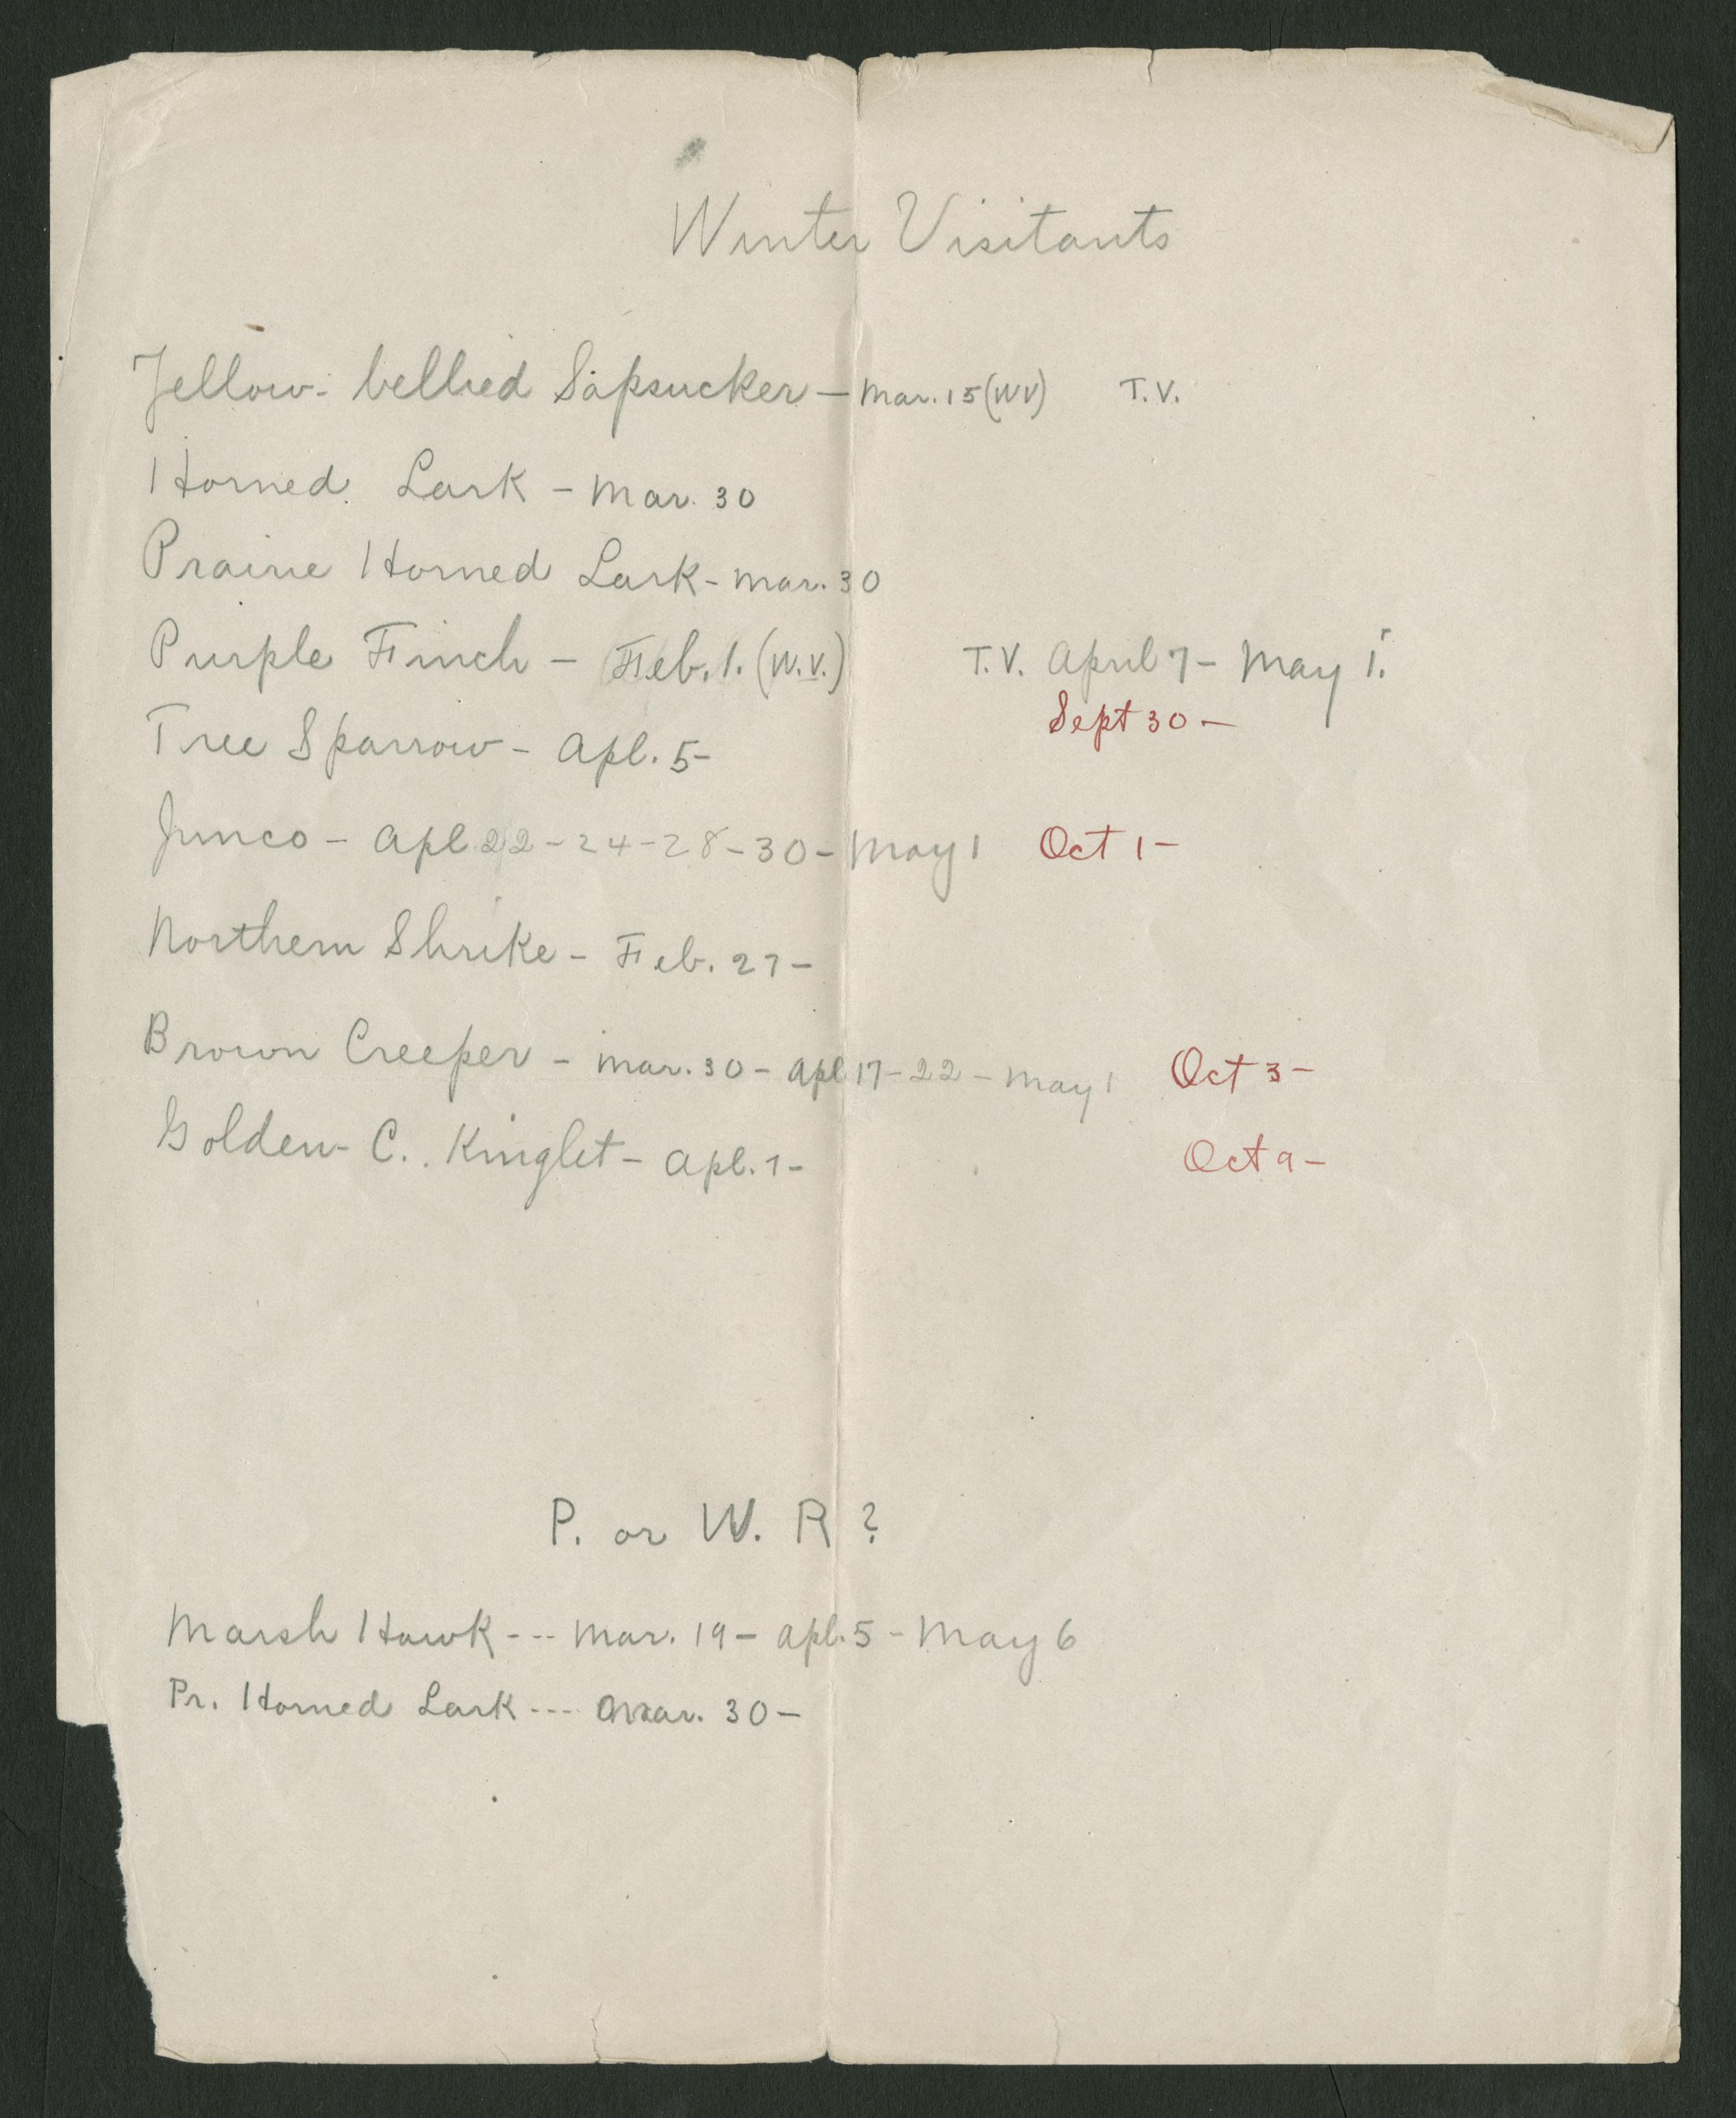 Winter Visitants
Yellow-bellied Sapsucker – Mar. 15 (WV) T.V.
Horned Lark – Mar. 30
Prairie Horned Lark – Mar. 30
Purple Finch – Feb. 1. (W.V.) T.V. April 7 – May 1.
Sept 30 –
Tree Sparrow – Apl. 5 –
Junco – Apl 22 – 24 – 28 – 30 – May 1 Oct 1 –
Northern Shrike – Feb. 27 –
Brown Creeper – Mar. 30 – Apl 17 – 22 – May 1 Oct 3 –
Golden – C. Kinglet – Apl. 7 – Oct 9 –
P. or W. R ?
Marsh Hawk --- Mar. 19 – Apl. 5 – May 6
Pr. Horned Lark --- Mar. 30 –